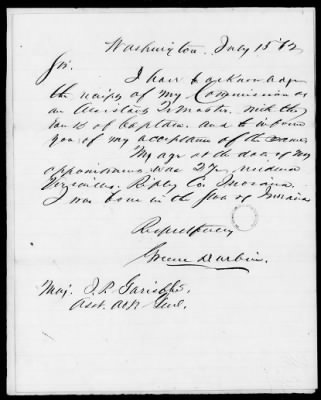 Washington July 15th 62
Sir.
I have to acknowledge
the receipt of my Commission as
an Assistant Qr. Master. with the
rank of Captain. and to inform
you of my acceptance of the same
My age at the date of my
appointment was 27. residence
Ripley Co. Indiana.
I was born in the State of Indiana
Respectfully
Greene Durbin.
Maj.
Asst. Adjt Genl.